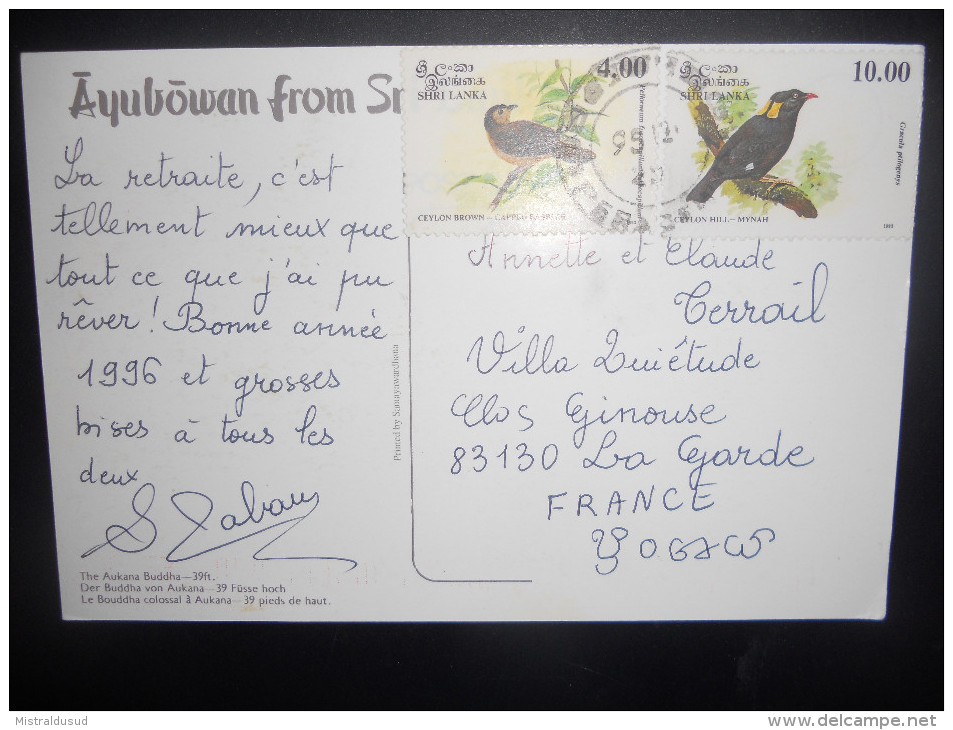 Āyubōwan from Sr
La retraite, c'est
tellement mieux que
tout ce que j'ai pu
rêver! Bonne année
1996 et grosses
bises à tous les
deux
The Aukana Buddha—39ft.
Der Buddha von Aukana—39 Füsse hoch
Le Bouddha colossal à Aukana—39 pieds de haut.
Printed by Samayawardhana
ශ්‍රී ලංකා
இலங்கை
SHRI LANKA
4.00
CEYLON BROWN – CAPPED BABBLER
ශ්‍රී ලංකා
இலங்கை
SHRI LANKA
10.00
Gracula ptilogenys
CEYLON HILL – MYNAH
Annette et Claude
Terrail
Villa Quiétude
Clos Ginouse
83130 La Garde
FRANCE
Mistraldusud
www.delcampe.net